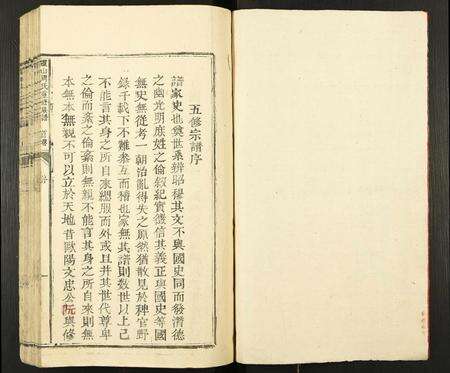 五修宗譜序
譜家史也奠世系辨昭穆其文不與國史同而發潛德
之幽光明庶姓之倫敘紀實傳信其義正與國史等國
無史無從考一朝治亂得失之原然猶散見於稗官野
錄千載下不難參互而稽也家無其譜則數世以上已
不能言其身之所自來總服而外或且并其世代尊卑
之倫而紊之倫紊則無親不能言其身之所自來則無
本無本無親不可以立於天地昔歐陽文忠公阮與修